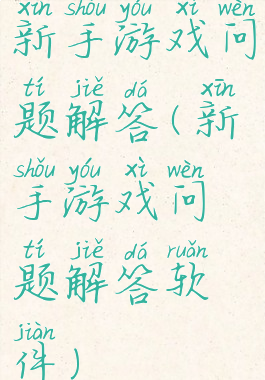 xīn shǒu yóu xì wèn
新手游戏问
tí jiě dá xīn
题解答(新
shǒu yóu xì wèn
手游戏问
tí jiě dá ruǎn
题解答软
jiàn
件)